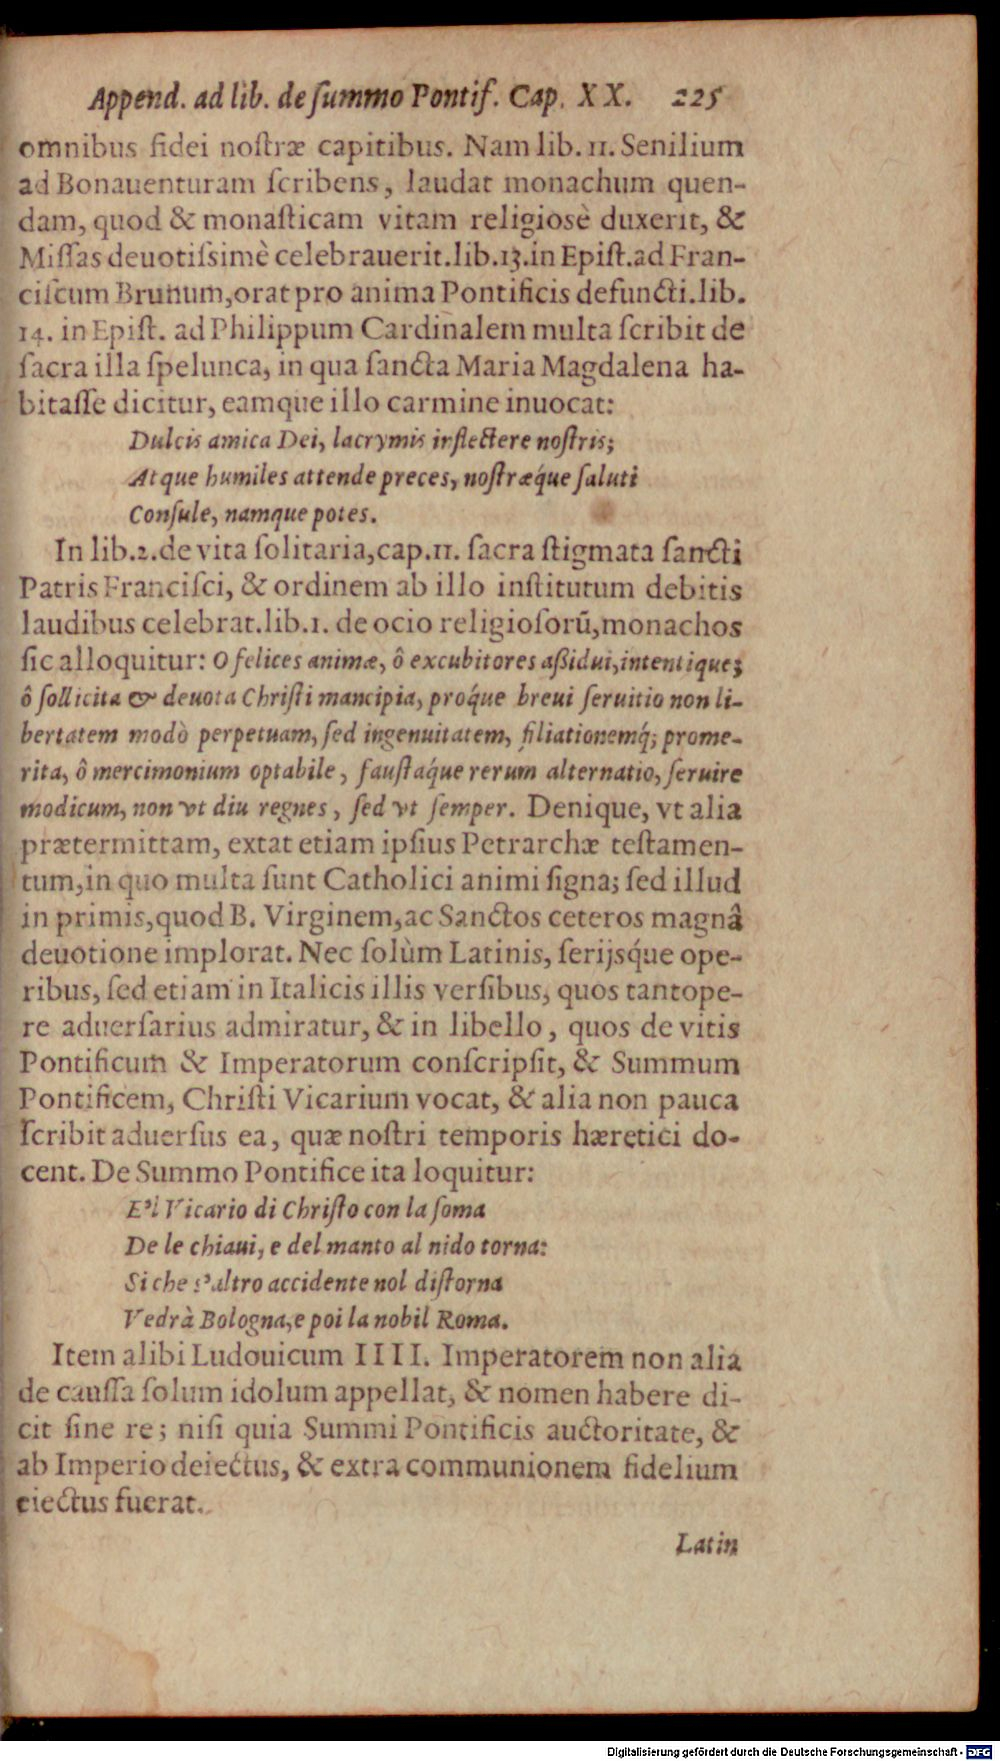 Append. ad lib. de ſummo Pontif. Cap. XX. 225
omnibus fidei noſtræ capitibus. Nam lib. 11. Senilium
ad Bonauenturam ſcribens, laudat monachum quen-
dam, quod & monaſticam vitam religiosè duxerit, &
Miſſas deuotiſsimè celebrauerit. lib. 13. in Epiſt. ad Fran-
ciſcum Brunum, orat pro anima Pontificis defuncti. lib.
14. in Epiſt. ad Philippum Cardinalem multa ſcribit de
ſacra illa ſpelunca, in qua ſancta Maria Magdalena ha-
bitaſſe dicitur, eamque illo carmine inuocat:
Dulcis amica Dei, lacrymis irflectere noſtris;
Atque humiles attende preces, noſtræq́ue ſaluti
Conſule, namque potes.
In lib. 2. de vita ſolitaria, cap. 11. ſacra ſtigmata ſancti
Patris Franciſci, & ordinem ab illo inſtitutum debitis
laudibus celebrat. lib. 1. de ocio religioſorū, monachos
ſic alloquitur: O felices animæ, ô excubitores aßidui, intentique;
ô ſollicita & deuota Chriſti mancipia, proq́ue breui ſeruitio non li-
bertatem modò perpetuam, ſed ingenuitatem, filiationemq́; prome-
rita, ô mercimonium optabile, fauſtaq́ue rerum alternatio, ſeruire
modicum, non vt diu regnes, ſed vt ſemper. Denique, vt alia
prætermittam, extat etiam ipſius Petrarchæ teſtamen-
tum, in quo multa ſunt Catholici animi ſigna; ſed illud
in primis, quod B. Virginem, ac Sanctos ceteros magnâ
deuotione implorat. Nec ſolùm Latinis, ſerijsq́ue ope-
ribus, ſed etiam in Italicis illis verſibus, quos tantope-
re aduerſarius admiratur, & in libello, quos de vitis
Pontificum & Imperatorum conſcripſit, & Summum
Pontificem, Chriſti Vicarium vocat, & alia non pauca
ſcribit aduerſus ea, quæ noſtri temporis hæretici do-
cent. De Summo Pontifice ita loquitur:
E'l Vicario di Chriſto con la ſoma
De le chiaui, e del manto al nido torna:
Si che s'altro accidente nol diſtorna
Vedrà Bologna, e poi la nobil Roma.
Item alibi Ludouicum IIII. Imperatorem non alia
de cauſſa ſolum idolum appellat, & nomen habere di-
cit ſine re; niſi quia Summi Pontificis auctoritate, &
ab Imperio deiectus, & extra communionem fidelium
eiectus fuerat.
Latin
Digitalisierung gefördert durch die Deutsche Forschungsgemeinschaft - DFG